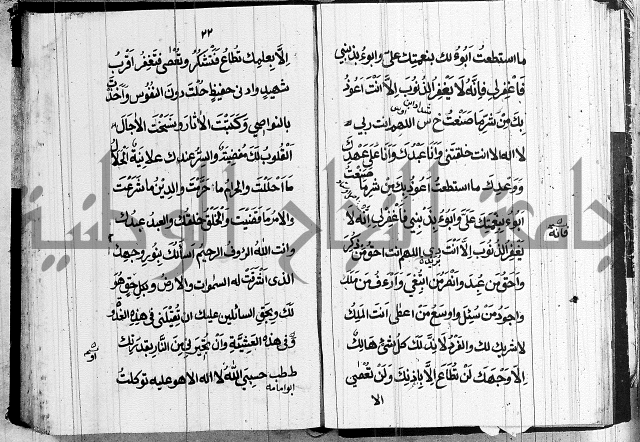 ما استطعت ابوء لك بنعمتك علي وابوء بذنبي
فاغفر لي فانه لا يغفر الذنوب الا انت اعوذ
بك من شر ما صنعت خ س اللهم انت ربي
لا اله الا انت خلقتني وانا عبدك وانا على عهدك
ووعدك ما استطعت اعوذ بك من شر ما صنعت
ابوء بنعمتك علي وابوء بذنبي فاغفر لي انه لا
يغفر الذنوب الا انت اللهم انت احق من ذكر
واحق من عبد وانصر من ابتغي وارءف من ملك
واجود من سئل واوسع من اعطى انت الملك
لا شريك لك والفرد لا ند لك كل شيء هالك
الا وجهك لن تطاع الا باذنك ولن تعصى
الا
فانه
٢٢
الا بعلمك تطاع فتشكر وتعصى فتغفر اقرب
شهيد وادنى حفيظ حلت دون النفوس واخذت
بالنواصي وكتبت الاثار ونسخت الاجال
القلوب لك مفضية والسر عندك علانية الحلال
ما احللت والحرام ما حرمت والدين ما شرعت
والامر ما قضيت والخلق خلقك والعبد عبدك
وانت الله الرؤف الرحيم اسألك بنور وجهك
الذي اشرقت له السموات والارض وبكل حق هو
لك وبحق السائلين عليك ان تقيلني في هذه الغداة
وفي هذه العشية وان تجيرني من النار بقدرتك
ط طب حسبي الله لا اله الا هو عليه توكلت
ابو امامه
جامعة النجاح الوطنية